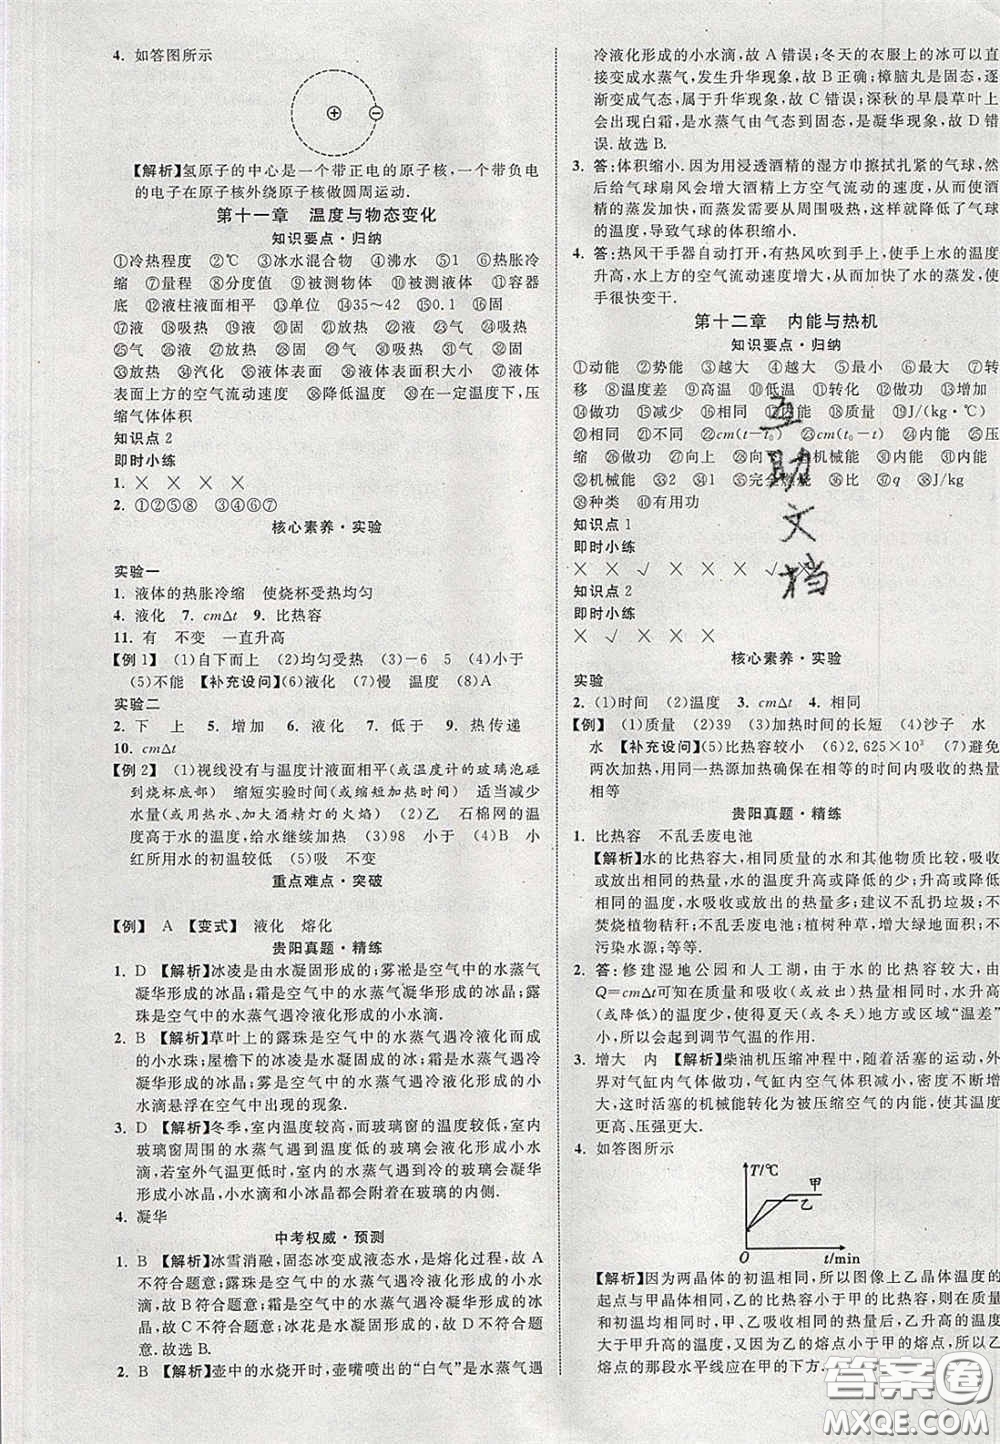 4. 如答图所示
【解析】氢原子的中心是一个带正电的原子核,一个带负电
的电子在原子核外绕原子核做圆周运动.
第十一章 温度与物态变化
知识要点·归纳
①冷热程度 ②℃ ③冰水混合物 ④沸水 ⑤1 ⑥热胀冷
缩 ⑦量程 ⑧分度值 ⑨被测物体 ⑩被测液体 ⑪容器
底 ⑫液柱液面相平 ⑬单位 ⑭35~42 ⑮0.1 ⑯固
⑰液 ⑱吸热 ⑲放热 ⑳固
㉝放热 ㉞汽化 ㉟液体表面 ㊱液体表面积大小 ㊲液体
表面上方的空气流动速度 ㊳降低温度 ㊴在一定温度下,压
缩气体体积
知识点2
即时小练
1. × × × ×
2. ①②⑤⑧ ③④⑥⑦
核心素养·实验
实验一
1. 液体的热胀冷缩 使烧杯受热均匀
4. 液化 7. cmΔt 9. 比热容
11. 有 不变 一直升高
【例1】 (1)自下而上 (2)均匀受热 (3)-6 5 (4)小于
(5)不能 【补充设问】(6)液化 (7)慢 温度 (8)A
实验二
2. 下 上 5. 增加 6. 液化 7. 低于 9. 热传递
10. cmΔt
【例2】 (1)视线没有与温度计液面相平(或温度计的玻璃泡碰
到烧杯底部) 缩短实验时间(或缩短加热时间) 适当减少
水量(或用热水、加大酒精灯的火焰) (2)乙 石棉网的温
度高于水的温度,给水继续加热 (3)98 小于 (4)B 小
红所用水的初温较低 (5)吸 不变
重点难点·突破
【例】 A 【变式】 液化 熔化
贵阳真题·精练
1. D 【解析】冰凌是由水凝固形成的;雾凇是空气中的水蒸气
凝华形成的冰晶;霜是空气中的水蒸气凝华形成的冰晶;露
珠是空气中的水蒸气遇冷液化形成的水滴.
2. B 【解析】草叶上的露珠是空气中的水蒸气遇冷液化而成
的小水珠;屋檐下的冰凌是水凝固而成的;雾是空气中的水
蒸气遇冷液化形成的;云是空气中的水蒸气遇冷形成的小
水滴悬浮在空气中出现的现象.
3. D 【解析】冬季,室内温度较高,而玻璃的温度较低,室内
玻璃窗周围的水蒸气遇到温度低的玻璃液化形成小水
滴;若室外气温更低时,室内的水蒸气遇到冷的玻璃会凝华
形成小冰晶,小水滴和小冰晶都会附着在玻璃的内侧.
4. 凝华
中考权威·预测
1. B 【解析】冰雪消融,固态冰变成液态水,是熔化过程,故A
不符合题意;露珠是空气中的水蒸气遇冷液化形成的小水
滴,故B符合题意;霜是空气中的水蒸气遇冷凝华形成的,
故C不符合题意;冰花是水凝固形成的,故D不符合题意.
故选B.
2. B 【解析】壶中的水烧开时,壶嘴喷出的“白气”是水蒸气遇
冷液化形成的小水滴,故A错误;冬天的衣服上的冰可以直
接变成水蒸气,发生升华现象,故B正确;樟脑丸是固态,逐
渐变成气态,属于升华现象,故C错误;深秋的早晨草叶上
会出现白霜,是水蒸气由气态到固态,是凝华现象,故D错
误.故选B.
3. 答:体积缩小.因为用浸透酒精的湿方巾擦拭扎紧的气球,然
后给气球扇风会增大酒精上方空气流动的速度,加快了酒精
的蒸发加快,蒸发时需要从周围吸热,因此降低了气球
的温度,导致气球的体积缩小.
4. 答:热风干手器自动打开,有热风吹到手上,使手上水的温度
升高,水上方的空气流动速度增大,从而加快了水的蒸发,使
手很快变干.
第十二章 内能与热机
知识要点·归纳
①动能 ②势能 ③越大 ④越大 ⑤最小 ⑥最大 ⑦转
移 ⑧温度差 ⑨高温 ⑩低温 ⑪转化 ⑫做功 ⑬增加
⑭做功 ⑮减少 ⑯相同 ⑰内能 ⑱质量 ⑲J/(kg·℃)
⑳相同 ㉑不同 ㉒cm(t-t₀) ㉓cm(t₀-t) ㉔内能 ㉕压
缩 ㉖做功
㊴种类 ㊵有用功
知识点1
即时小练
知识点2
即时小练
× √ × × ×
核心素养·实验
实验
2. (1)时间 (2)温度 3. cmΔt 4. 相同
【例】 (1)质量 (2)39 (3)加热时间的长短 (4)沙子 水
水 【补充设问】(5)比热容较小 (6)2.625×10³ (7)避免
两次加热,用同一热源加热确保在相等的时间内吸收的热量
相等
贵阳真题·精练
1. 比热容 不乱丢废电池
【解析】水的比热容大,相同质量的水和其他物质比较,吸收
或放出相同的热量,水的温度升高或降低的少;升高或降低
相同的温度,水吸收或放出的热量多;不乱扔垃圾;不
焚烧植物秸秆;不乱丢废电池;植树造林,增大绿地面积;不
污染水源;等等.
2. 答:修建湿地公园和人工湖,由于水的比热容较大,由
Q=cmΔt可知在质量和吸收(或放出)热量相同时,水升高
(或降低)的温度少,使得夏天(或冬天)地方或区域“温差”
小,所以会起到调节气温的作用.
3. 增大 内 【解析】柴油机压缩冲程中,随着活塞的运动,外
界对气缸内气体做功,气缸内空气体积减小,密度不断增
大,这时活塞的机械能转化为被压缩空气的内能,使其温度
更高、压强更大.
4. 如答图所示
T/℃
甲
乙
O
t/min
【解析】因为两晶体的初温相同,所以图像上乙晶体温度的
起点与甲晶体相同,乙的比热容小于甲的比热容,在质量
和初温均相同时,经过相同的加热时间,乙升高的温度
大于甲升高的温度,又因为乙的熔点小于甲的熔点,所以乙
熔点的那段水平线应在甲的下方.
互助文档
答案圈
MXQE.COM